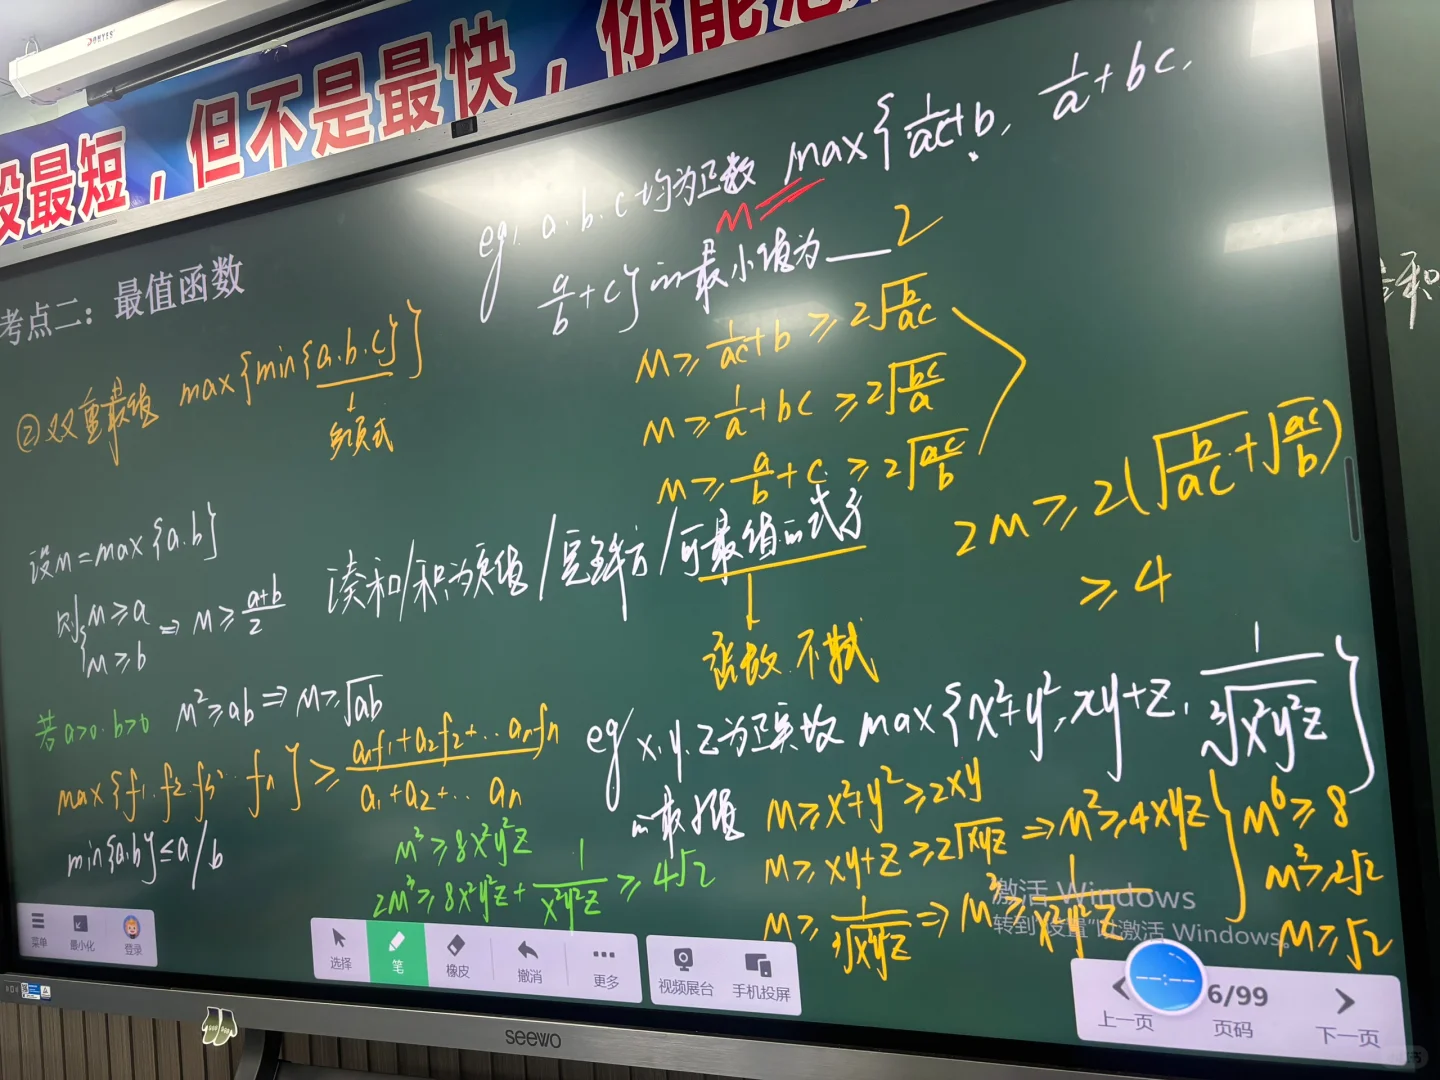 DONYES
设最短，但不是最快，你能
考点二：最值函数
②双重最值 max{min{a.b.c}}
多项式
设M=max{a.b}
则{M≥a
M≥b ⇒ M≥(a+b)/2
若a>0.b>0 M²≥ab⇒M≥√ab
max{f₁.f₂.f₃… fₙ}≥(a₁f₁+a₂f₂+…aₙfₙ)/(a₁+a₂+…aₙ)
min{a.b}≤a/b
eg. a.b.c均为正数 max{1/ac+b, 1/a+bc,
M
a/b+c}的最小值为__2
M≥1/ac+b≥2√(b/ac)
M≥1/a+bc≥2√(bc/a)
M≥a/b+c≥2√(ac/b)
2M≥2(√(b/ac)+√(ac/b))
≥4
凑和/积为定值/完全平方/可最值的式子
函数.不等式
eg x.y.z为正实数 max{x²+y²,xy+z,1/∛(x²y²z)}
的最小值
M≥x²+y²≥2xy
M≥xy+z≥2√xyz⇒M²≥4xyz
M≥1/∛(x²y²z)⇒M³≥1/(x²y²z)
M⁶≥8
M³≥2√2
M≥√2
M³≥8x²y²z
2M³≥8x²y²z+1/(x²y²z)≥4√2
激活 Windows
转到"设置"以激活 Windows。
菜单 最小化 登录
选择 笔 橡皮 撤消 更多
视频展台 手机投屏
上一页 6/99 页码 下一页
seewo